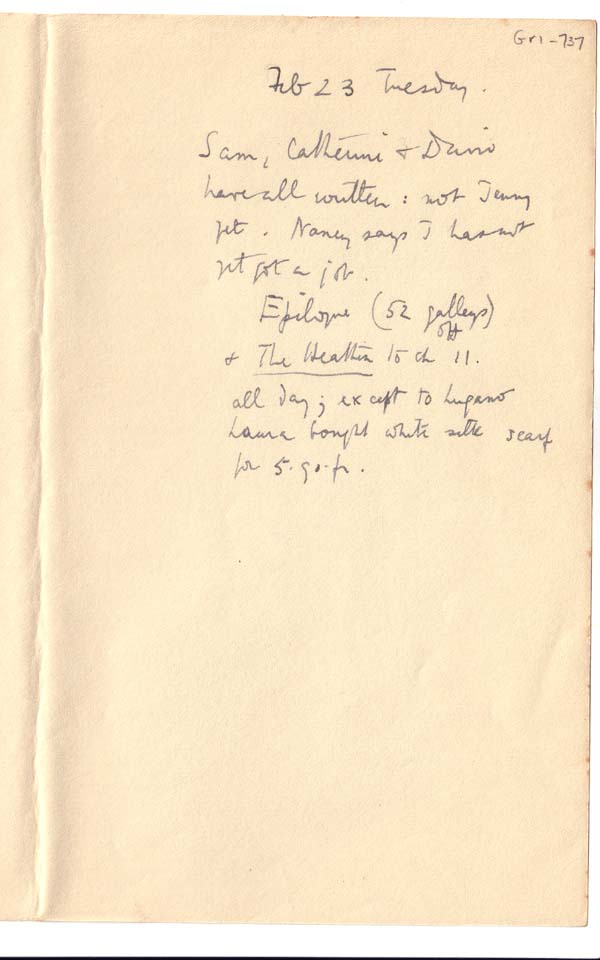 Gr1-737
Feb 23 Tuesday.
Sam, Catherine & David
have all written: not Jenny
yet. Nancy says J has not
yet got a job.
Epilogue (52 galleys)
off
& The Heathen to ch 11.
all day; except to Lugano
Laura bought white silk scarf
for 5.90.fr.